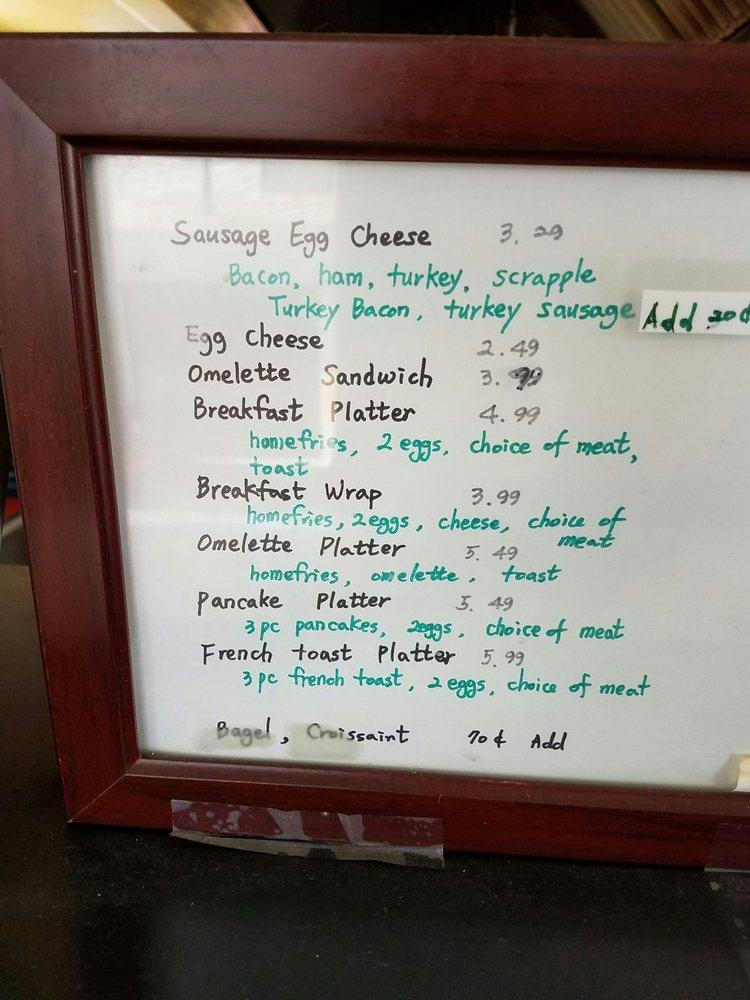 Sausage Egg Cheese 3.29
Bacon, ham, turkey, scrapple
Turkey Bacon, turkey sausage Add .20¢
Egg Cheese 2.49
Omelette Sandwich 3.
Breakfast Platter 4.99
homefries, 2 eggs, choice of meat,
toast
Breakfast Wrap 3.99
homefries, 2eggs, cheese, choice of
meat
Omelette Platter 5.49
homefries, omelette, toast
Pancake Platter 5.49
3 pc pancakes, 2eggs, choice of meat
French toast Platter 5.99
3 pc french toast, 2 eggs, choice of meat
Bagel, Croissaint 70¢ Add